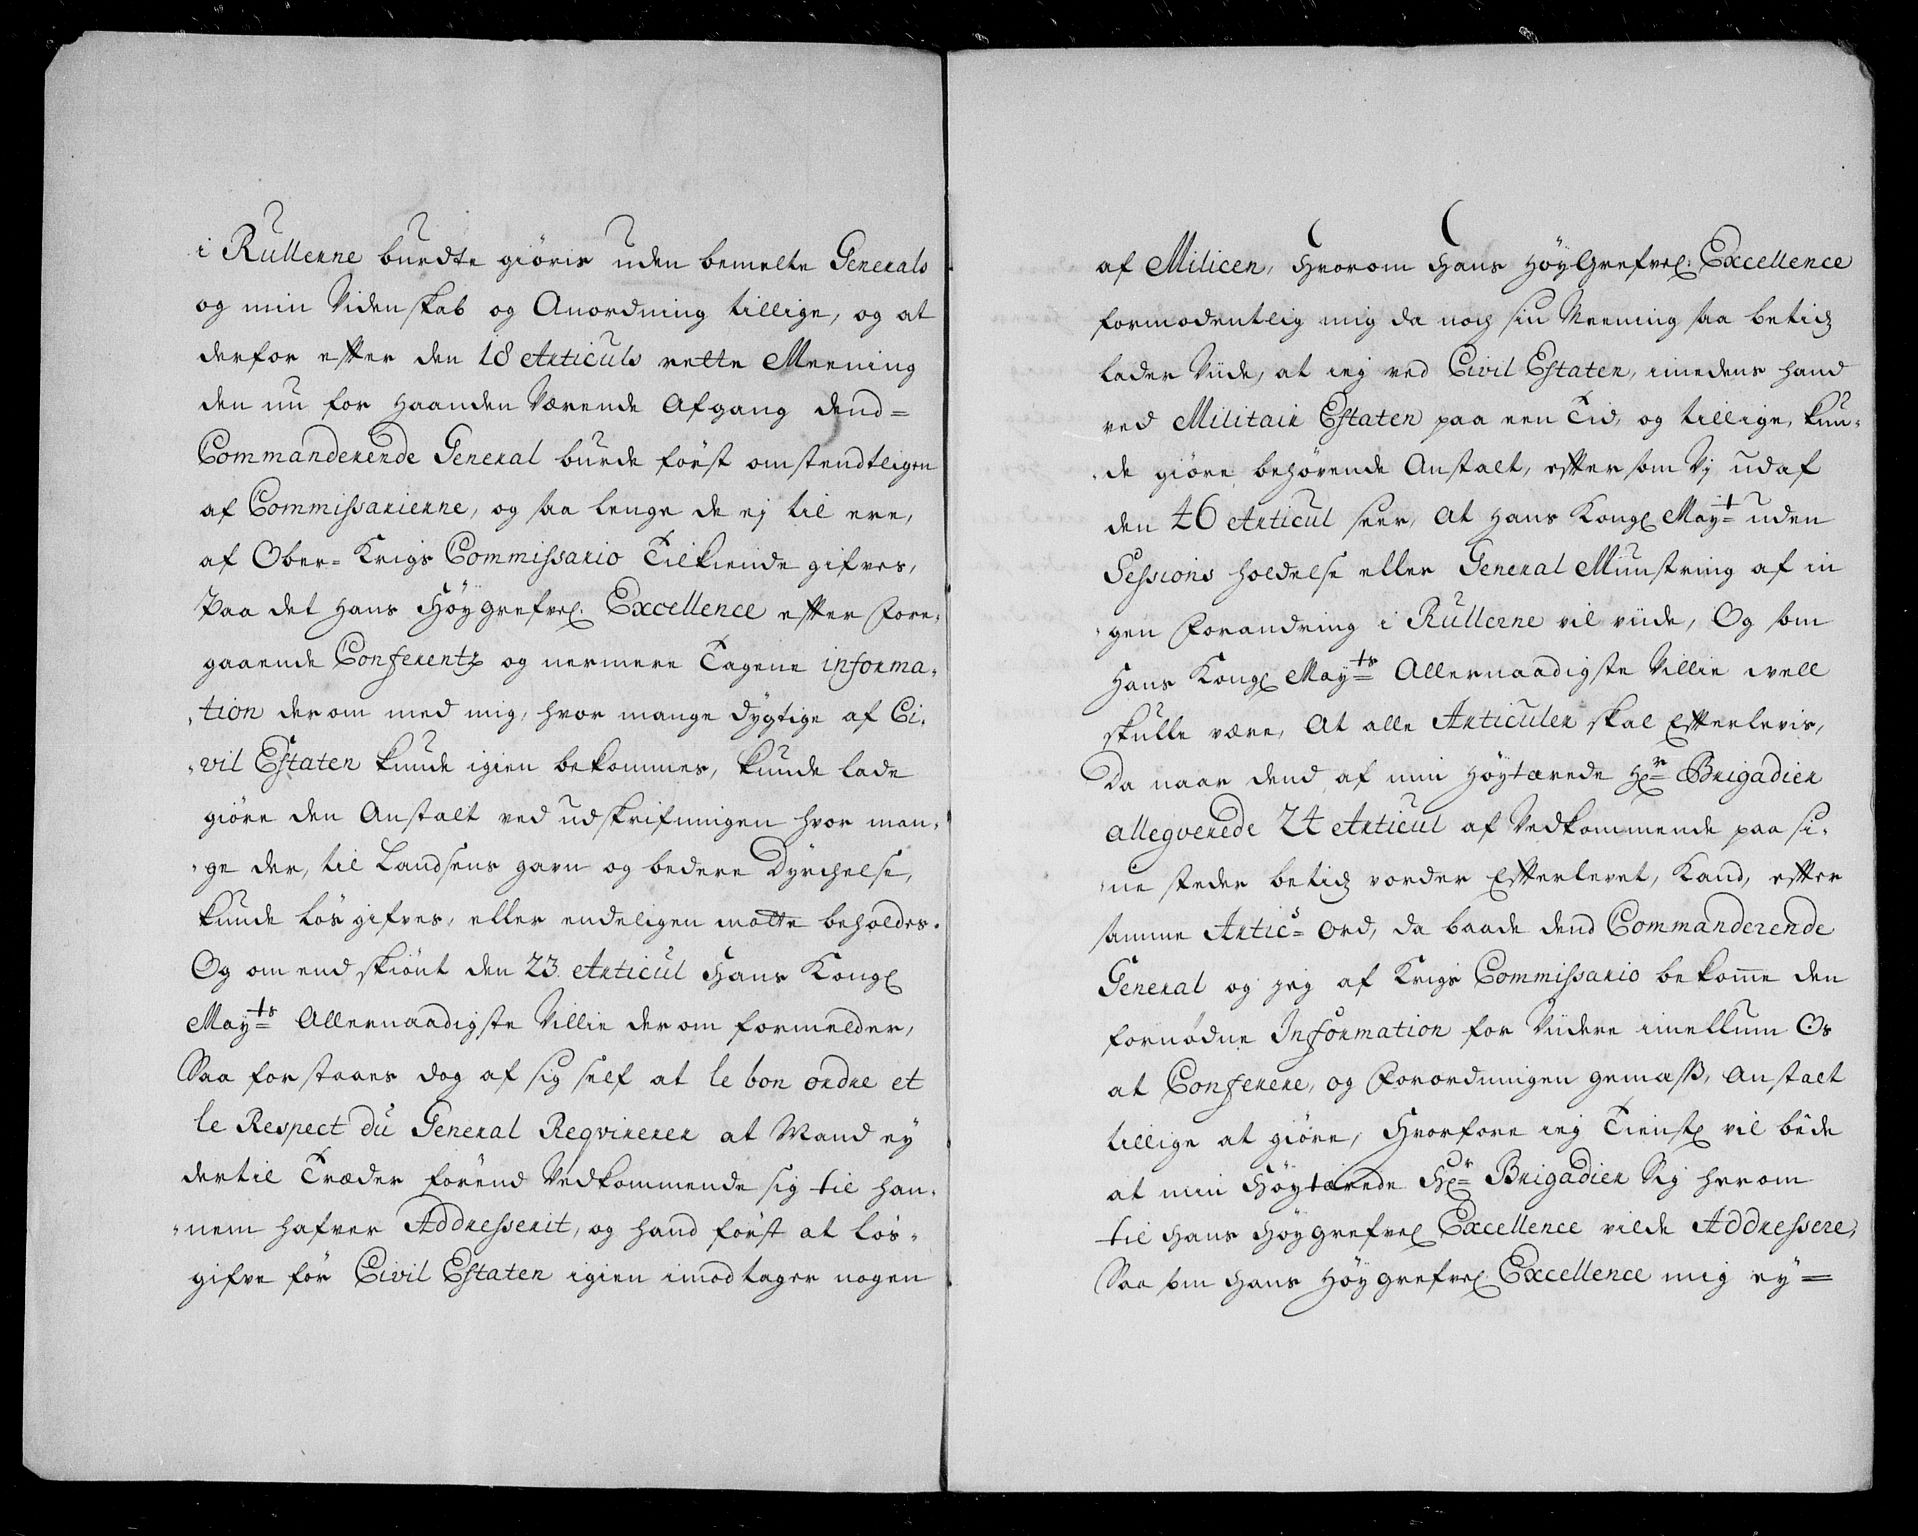 i Rullerne burdte giøris uden bemelte Generals
og min Videnskab og Anordning tillige, og at
derfor efter den 18 Articuls rette Meening
den nu for haanden Værende Afgang dend=
Commanderende General burde först omstendtligen
af Commissarierne, og saa lenge de ej til ere,
af Ober= Krigs Commissario Tilkiende gifves,
Paa det Hans Höygrefvel: Excellence efter fore=
gaaende Conferentz og nermere Tagene informa=
=tion derom med mig, hvor mange dygtige af Ci=
=vil Estaten kunde igien bekommes, kunde lade
giöre den Anstalt ved udskrifningen hvor man=
=ge der, til Landsens gavn og bedere Dyrchelse,
kunde lös gifves, eller endeligen motte beholdes.
Og omendskiönt den 23 Articul Hans Kongl
Mayts Allernaadigste Villie derom formelder,
Saa forstaaes dog af sig self at le bon ordre et
le Respect du General Reqvirerer at Mand ey
dertil Træder förend Vedkommende sig til han=
=nem hafver Addresserit, og hand först at lös=
gifve för Civil Estaten igien imodtager nogen
af Milicen, Hvorom Hans HöyGrefvel: Excellence
formodentlig mig da nock sin Meening saa betids
lader Viide, at ieg ved Civil Estaten, imedens hand
ved Militair Estaten paa een Tid, og tillige, kun=
=de giöre behørende Anstalt, efter som Vj udaf
den 46 Articul seer, At Hans Kongl Mayt uden
Sessions holdelse eller General Munstring af in
=gen Forandring i Rullerne vil viide, Og som
Hans Kongl Mayts Allernaadigste Villie well
skulle være, At alle Articuler skal Efterlevis,
Da naar dend af min Höytærede Hr Brigadier
allegverede 24 Articul af Vedkommende paa si=
=ne steder betids vorder Efterlevet, Kand, efter
samme Artics Ord, da baade dend Commanderende
General og jeg af Krigs Commissario bekome den
fornødne Information for Viidere imellum Os
at Conferere, og Forordningen gemæss, Anstalt
tillige at giöre, Hvorfore ieg Tienstl vil bede
at min Höytærede Hr Brigadier Sig herom
til Hans Höygrefvel Excellence vilde Addressere,
Saa som Hans Höygrefvel Excellence mig ey=